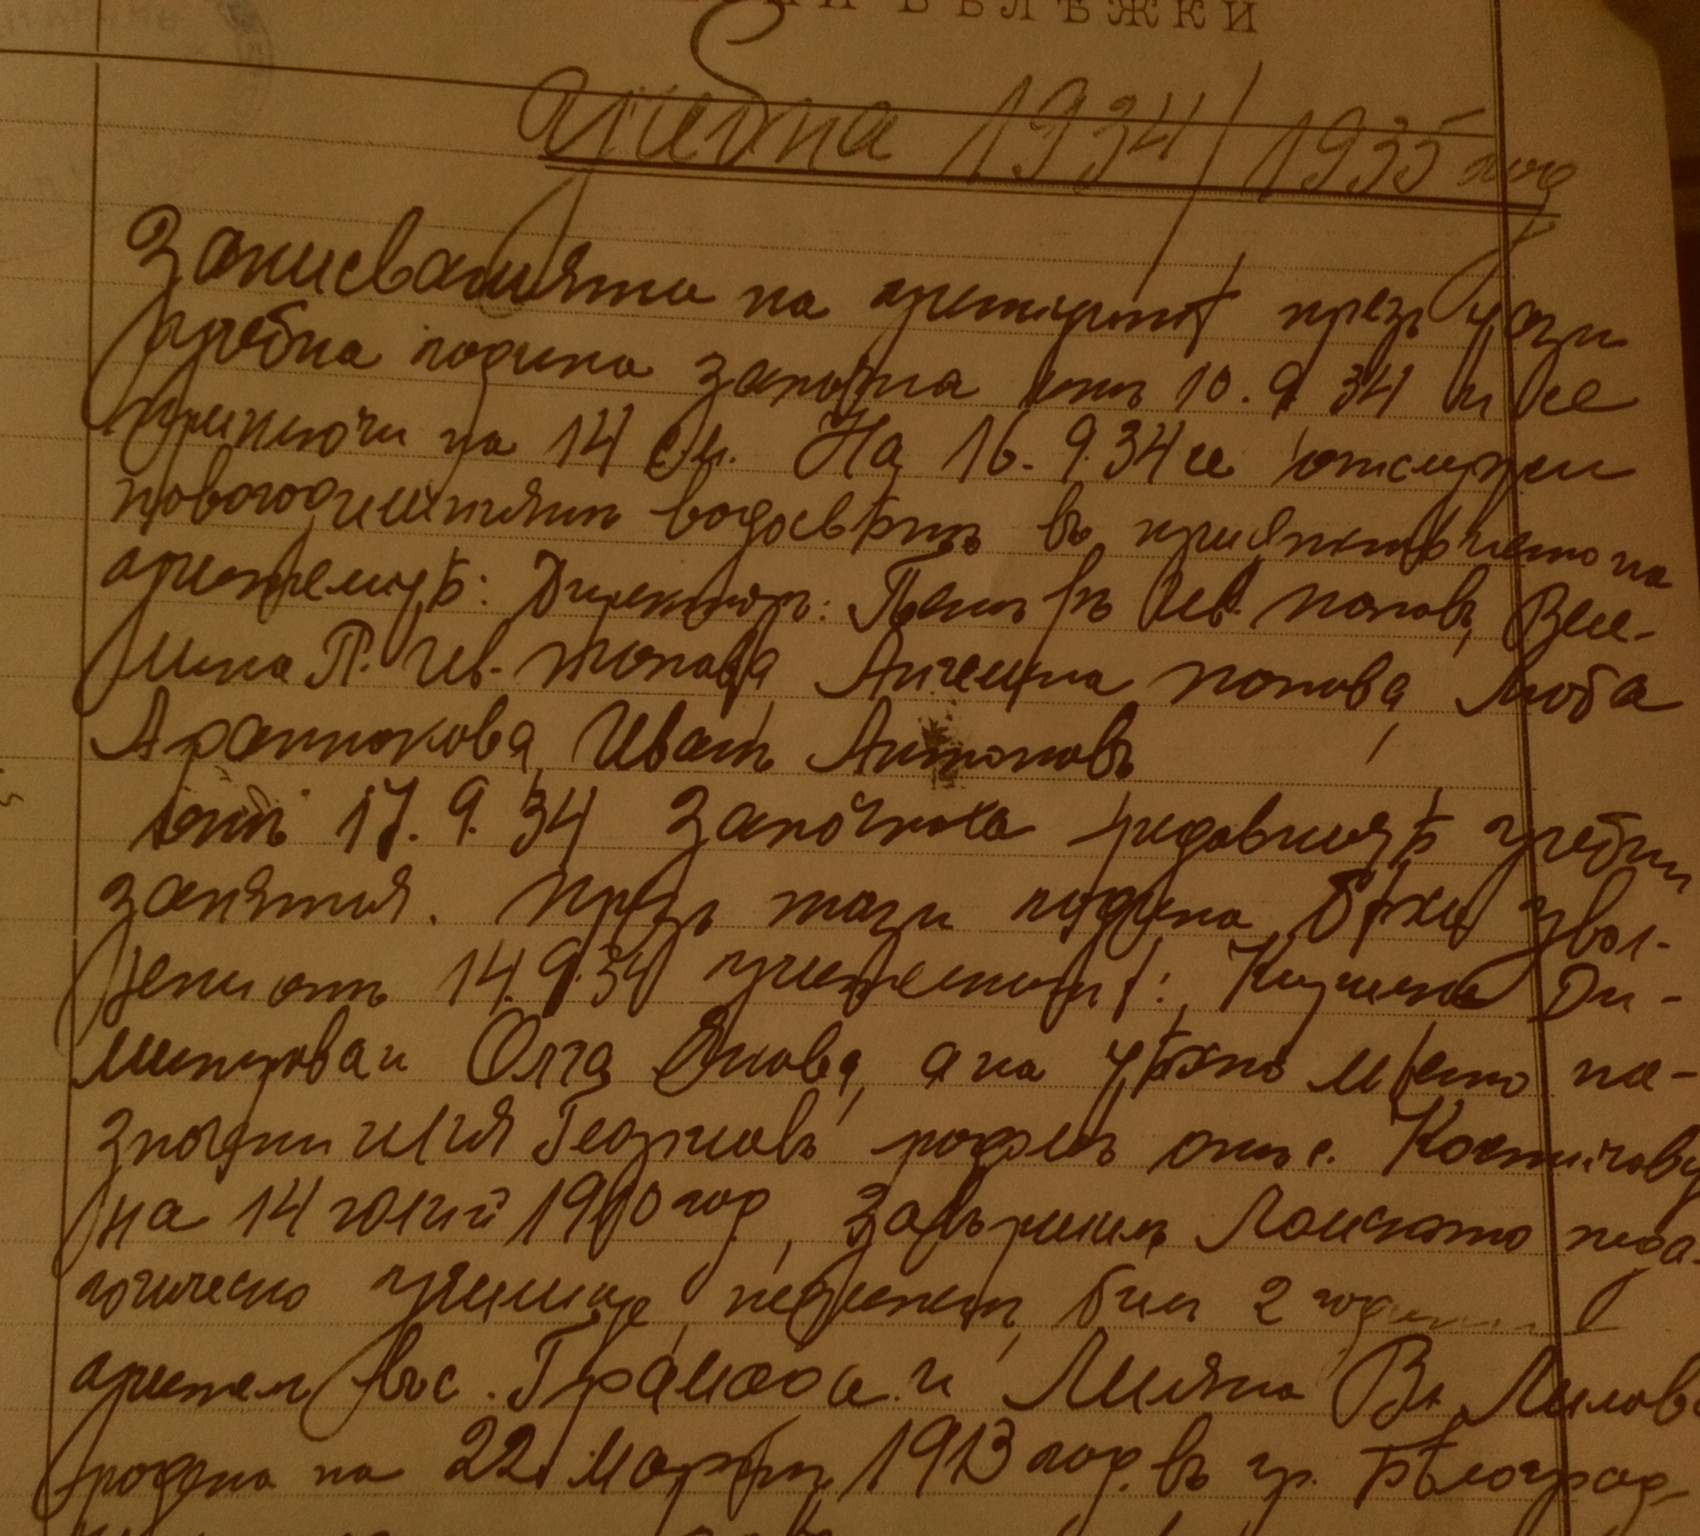 БѢЛѢЖКИ
Учебна 1934/1935 год
Записванията на ученицитѣ презъ тази
учебна година започна отъ 10.9.34 и се
приключи на 14 с.м. На 16.9.34 се отслужи
новогодишниятъ водосветъ въ присѫтствието на
учителитѣ: Директоръ: Петъръ Ив. Поповъ, Веле-
лина П. Ив. Попова, Ангелина Попова, Люба
Арапчокова, Иванъ Антоновъ
Отъ 17.9.34 започнаха редовнитѣ учебни
занятия. Презъ тази година бѣха увол-
нени отъ 14.9.34 учителкитѣ: Ди-
митрова и Олга Янова, а на тѣхно място на-
значени Илия Георгиевъ роденъ отъ с.
на 14 юлий 1910 год, завършилъ Ломското педа-
гогическо училище, нежененъ, билъ 2 години
учител въ с. Грамада и Лиляна В. Милова
родена на 22 Мартъ 1913 год. въ гр. Бѣлоград-